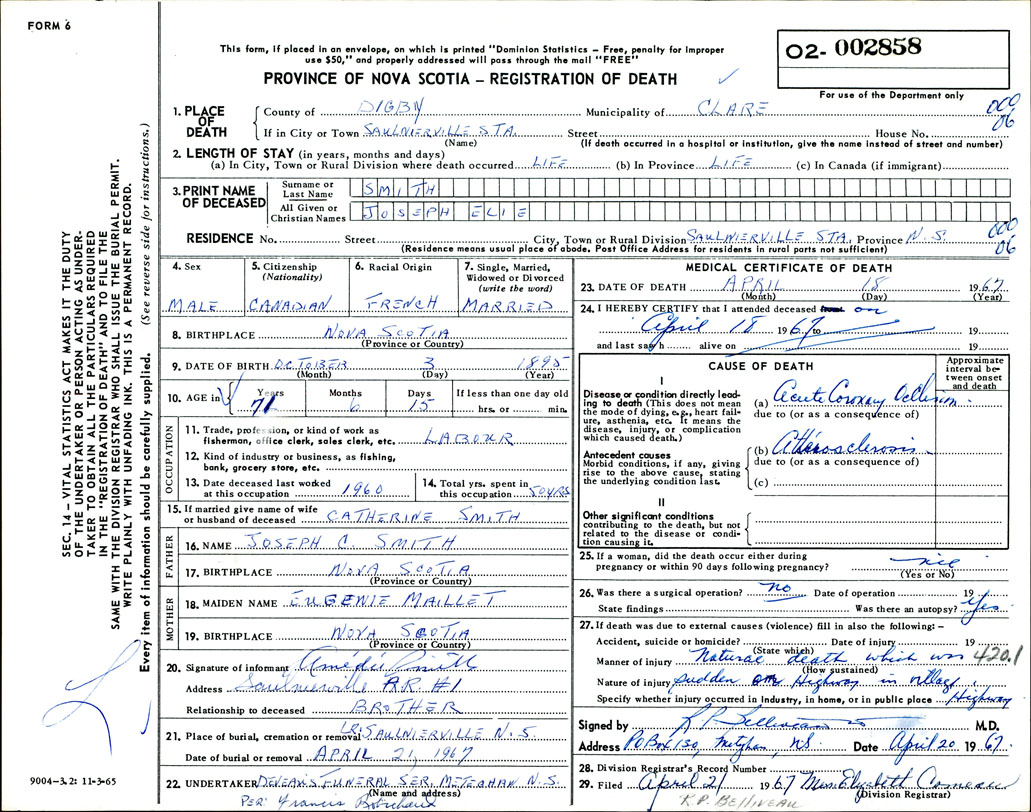 FORM 6
This form, if placed in an envelope, on which is printed "Dominion Statistics – Free, penalty for improper
use $50," and properly addressed will pass through the mail "FREE"
PROVINCE OF NOVA SCOTIA – REGISTRATION OF DEATH
02- 002858
For use of the Department only
1. PLACE OF DEATH
County of DIGBY Municipality of CLARE
000
06
If in City or Town SAULNIERVILLE STA. Street House No.
(Name) (If death occurred in a hospital or institution, give the name instead of street and number)
2. LENGTH OF STAY (in years, months and days)
(a) In City, Town or Rural Division where death occurred LIFE (b) In Province LIFE (c) In Canada (if immigrant)
3. PRINT NAME OF DECEASED
Surname or Last Name SMITH
All Given or Christian Names JOSEPH ELIE
RESIDENCE No. Street City, Town or Rural Division SAULNIERVILLE STA. Province N.S.
000
06
(Residence means usual place of abode. Post Office Address for residents in rural parts not sufficient)
4. Sex
MALE
5. Citizenship
(Nationality)
CANADIAN
6. Racial Origin
FRENCH
7. Single, Married,
Widowed or Divorced
(write the word)
MARRIED
8. BIRTHPLACE NOVA SCOTIA
(Province or Country)
9. DATE OF BIRTH OCTOBER 3 1895
(Month) (Day) (Year)
10. AGE in
Years Months Days If less than one day old
71 6 15 hrs. or min.
OCCUPATION
11. Trade, profession, or kind of work as
fisherman, office clerk, sales clerk, etc. LABOUR
12. Kind of industry or business, as fishing,
bank, grocery store, etc.
13. Date deceased last worked
at this occupation 1960
14. Total yrs. spent in
this occupation 50 YRS
15. If married give name of wife
or husband of deceased CATHERINE SMITH
FATHER
16. NAME JOSEPH C. SMITH
17. BIRTHPLACE NOVA SCOTIA
(Province or Country)
MOTHER
18. MAIDEN NAME EUGENIE MAILLET
19. BIRTHPLACE NOVA SCOTIA
(Province or Country)
20. Signature of informant Amédée Smith
Address Saulnierville RR #1
Relationship to deceased BROTHER
21. Place, of burial, cremation or removal SAULNIERVILLE N.S.
Date of burial or removal APRIL 21, 1967
22. UNDERTAKER DEVEAU'S FUNERAL SER. METEGHAN N.S.
(Name and address)
PER: Francis
MEDICAL CERTIFICATE OF DEATH
23. DATE OF DEATH APRIL 18 1967
(Month) (Day) (Year)
24. I HEREBY CERTIFY that I attended deceased from on
April 18 1967 to 19
and last saw h alive on 19
CAUSE OF DEATH
Approximate
interval be-
tween onset
and death
I
Disease or condition directly lead-
ing to death (This does not mean
the mode of dying, e.g., heart fail-
ure, asthenia, etc. It means the
disease, injury, or complication
which caused death.)
(a) Acute Coronary Occlusion
due to (or as a consequence of)
Antecedent causes
Morbid conditions, if any, giving
rise to the above cause, stating
the underlying condition last.
(b) Athérosclerosis
due to (or as a consequence of)
(c)
II
Other significant conditions
contributing to the death, but not
related to the disease or condi-
tion causing it.
25. If a woman, did the death occur either during
pregnancy or within 90 days following pregnancy? nil
(Yes or No)
26. Was there a surgical operation? no Date of operation 19
State findings Was there an autopsy? Yes
27. If death was due to external causes (violence) fill in also the following: –
Accident, suicide or homicide? Date of injury 19
(State which)
Manner of injury Natural death which was 420.1
(How sustained)
Nature of injury sudden on Highway in village.
Specify whether injury occurred in industry, in home, or in public place Highway
Signed by R P Belliveau M.D.
Address PO Box 130, Meteghan, NS Date April 20 1967
28. Division Registrar's Record Number
29. Filed April 21 1967 Elizabeth Comeau
(Division Registrar)
R.P. BELLIVEAU
SEC. 14 – VITAL STATISTICS ACT MAKES IT THE DUTY
OF THE UNDERTAKER OR PERSON ACTING AS UNDER-
TAKER TO OBTAIN ALL THE PARTICULARS REQUIRED
IN THE "REGISTRATION OF DEATH" AND TO FILE THE
SAME WITH THE DIVISION REGISTRAR WHO SHALL ISSUE THE BURIAL PERMIT.
WRITE PLAINLY WITH UNFADING INK. THIS IS A PERMANENT RECORD.
Every item of information should be carefully supplied. (See reverse side for instructions.)
9004-3.2: 11-3-65